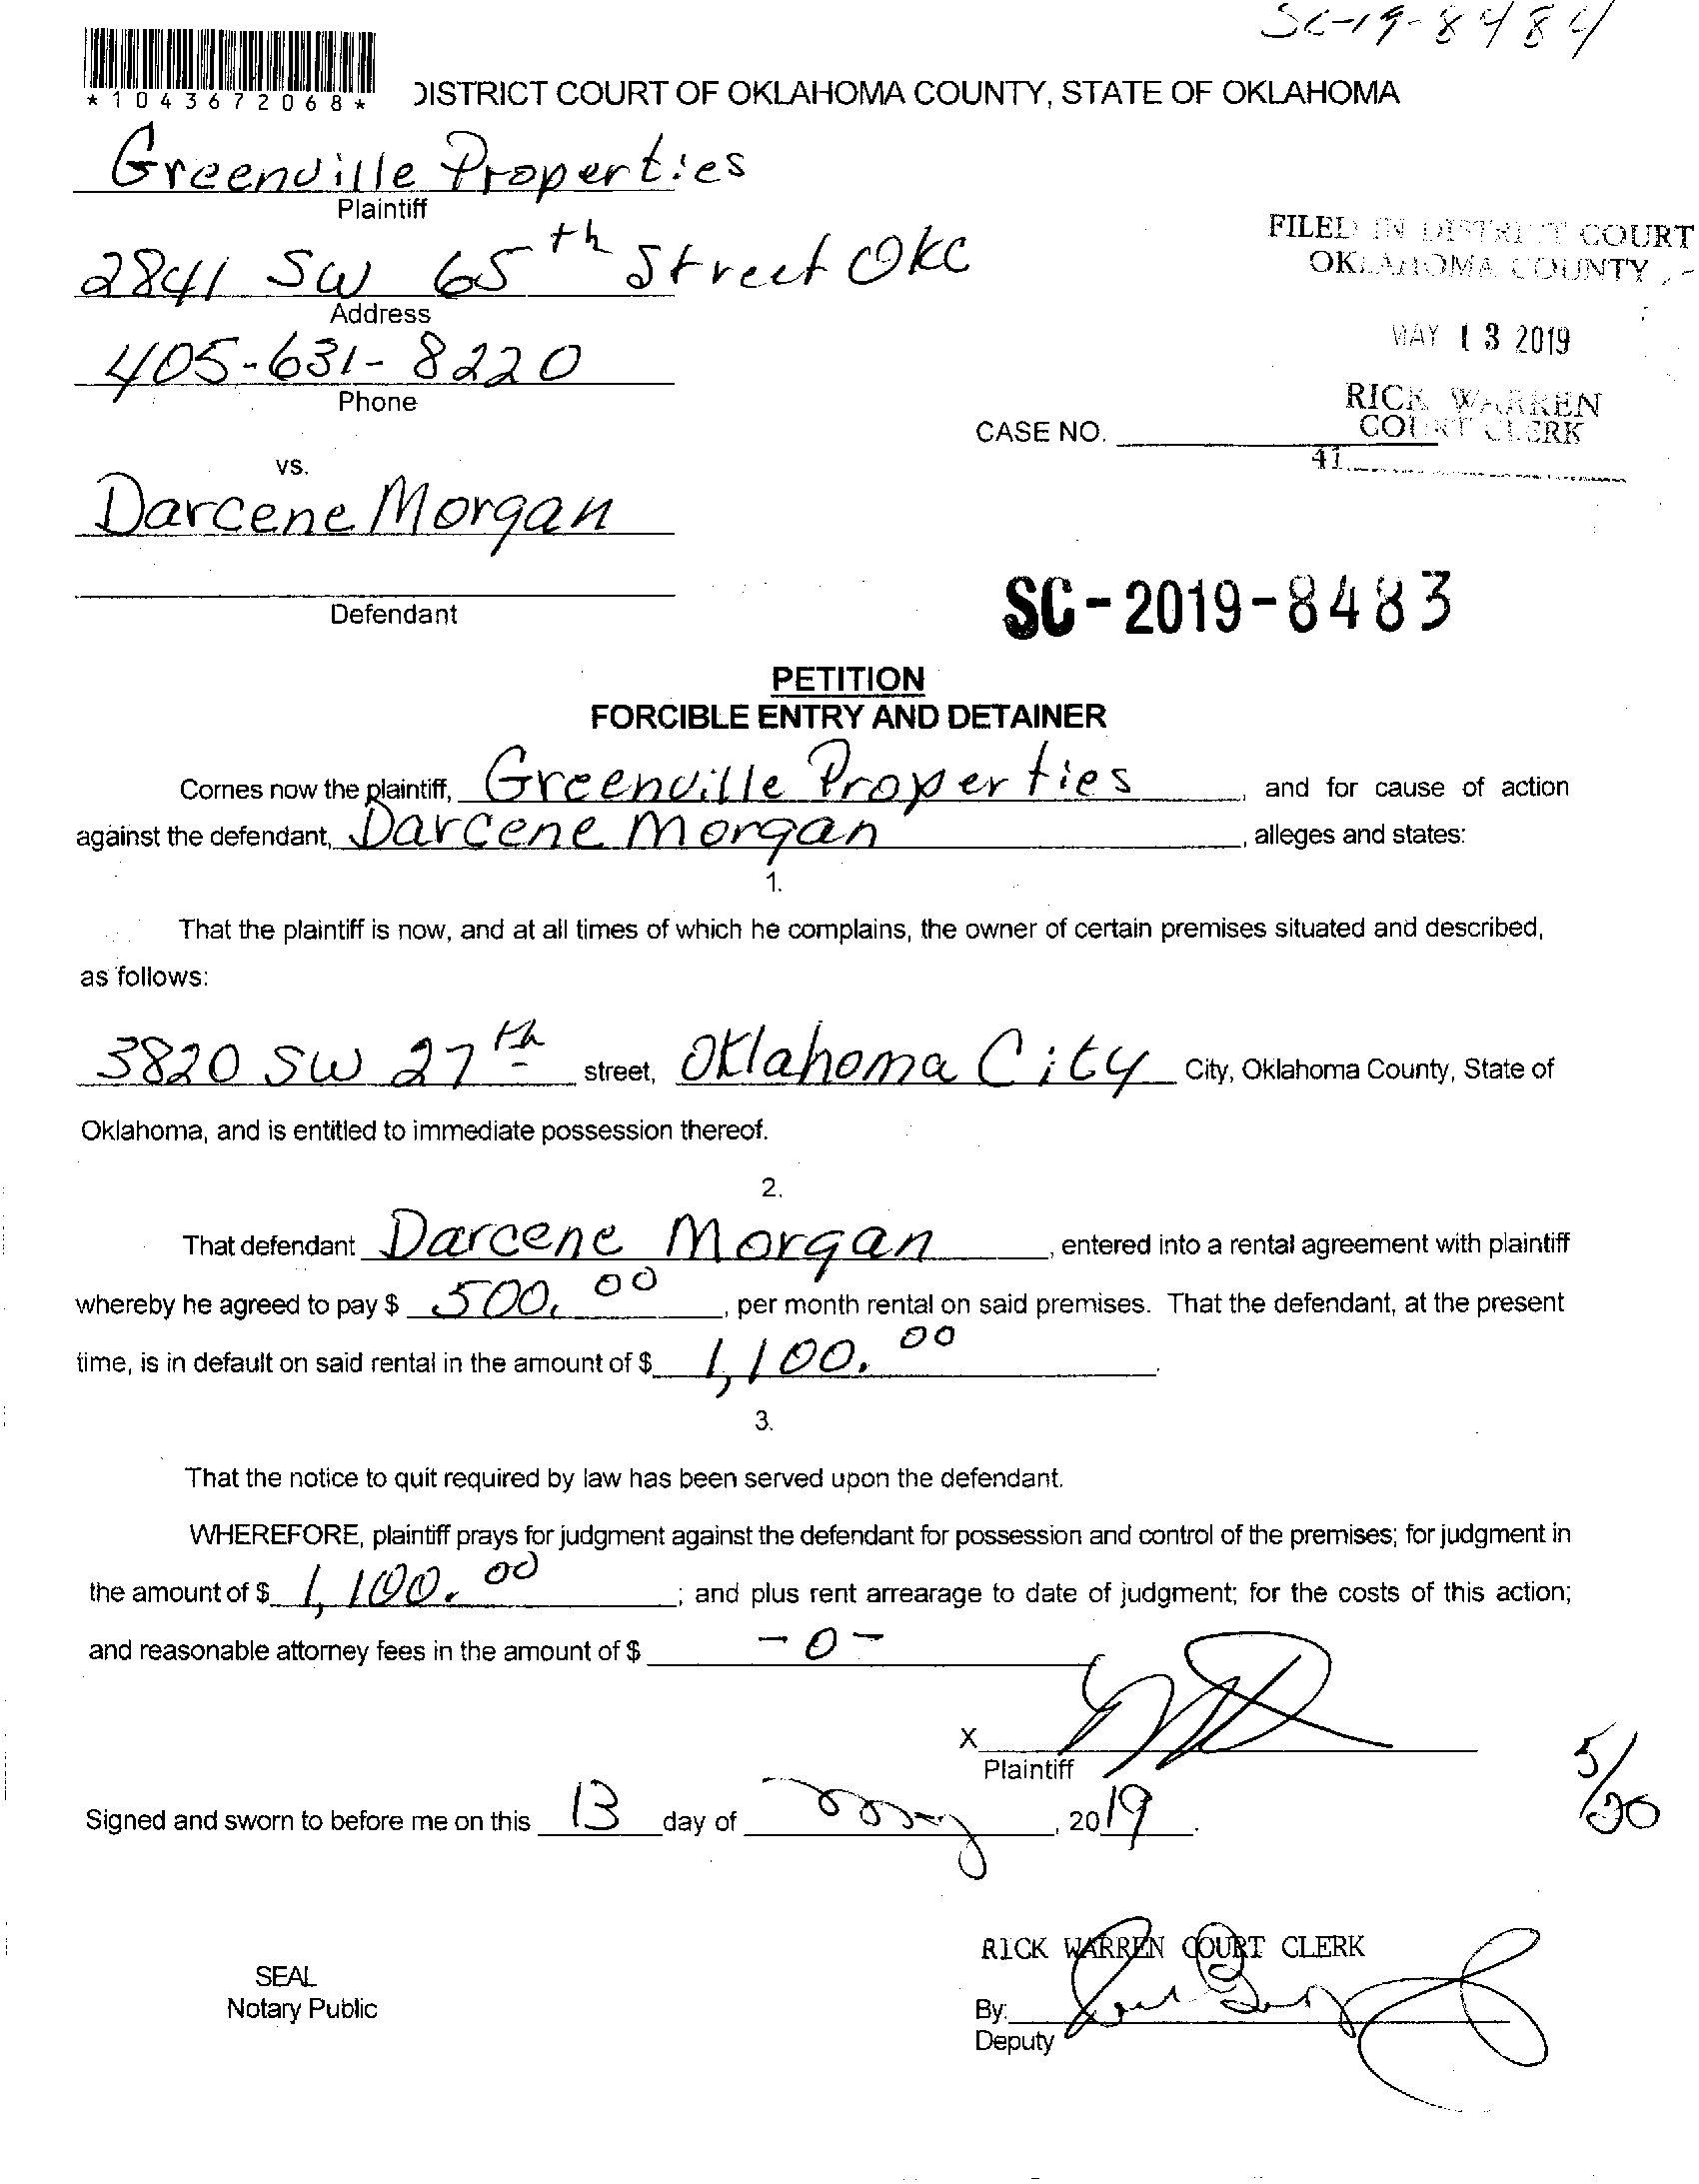 SC-19-8484
*1043672068*
DISTRICT COURT OF OKLAHOMA COUNTY, STATE OF OKLAHOMA
Greenville Properties
Plaintiff
2841 SW 65th Street OKC
Address
405-631-8220
Phone
FILED IN DISTRICT COURT
OKLAHOMA COUNTY
MAY 13 2019
RICK WARREN
COURT CLERK
41
CASE NO.
vs.
Darcene Morgan
Defendant
SC-2019-8483
PETITION
FORCIBLE ENTRY AND DETAINER
Comes now the plaintiff, Greenville Properties, and for cause of action
against the defendant, Darcene Morgan, alleges and states:
1.
That the plaintiff is now, and at all times of which he complains, the owner of certain premises situated and described,
as follows:
3820 SW 27th street, Oklahoma City City, Oklahoma County, State of
Oklahoma, and is entitled to immediate possession thereof.
2.
That defendant Darcene Morgan, entered into a rental agreement with plaintiff
whereby he agreed to pay $ 500.00, per month rental on said premises. That the defendant, at the present
time, is in default on said rental in the amount of $ 1,100.00.
3.
That the notice to quit required by law has been served upon the defendant.
WHEREFORE, plaintiff prays for judgment against the defendant for possession and control of the premises; for judgment in
the amount of $ 1,100.00; and plus rent arrearage to date of judgment; for the costs of this action;
and reasonable attorney fees in the amount of $ -0-
X
Plaintiff
5/20
Signed and sworn to before me on this 13 day of May, 2019.
RICK WARREN COURT CLERK
SEAL
Notary Public
By:
Deputy